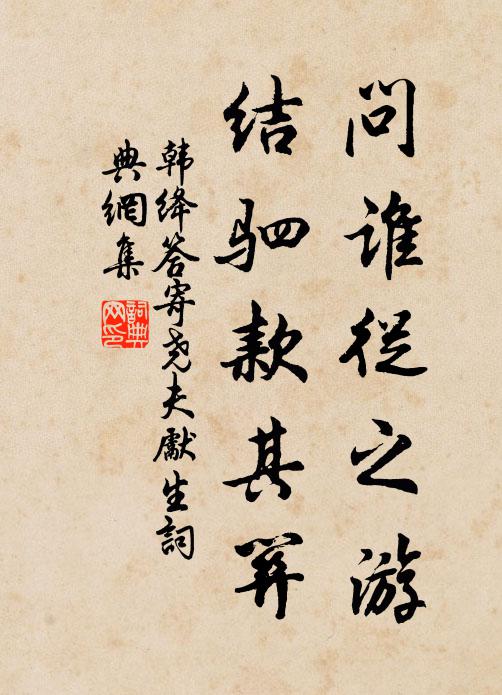 问谁从之游
结驷款其关
韩绛答寄尧夫献生词
典網集
詞典
网印